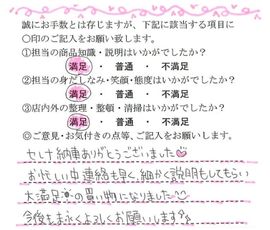 誠にお手数とは存じますが、下記に該当する項目に
〇印のご記入をお願い致します。
①担当の商品知識・説明はいかがでしたか？
満足 ・ 普通 ・ 不満足
②担当の身だしなみ・笑顔・態度はいかがでしたか？
満足 ・ 普通 ・ 不満足
③店内外の整理・整頓・清掃はいかがでしたか？
満足 ・ 普通 ・ 不満足
◎ご意見・お気付きの点等、ご記入をお願いします。
セレナ納車ありがとうございました
お忙しい中連絡も早く、細かく説明もしてもらい
大満足の買い物になりました
今後もよろしくお願いします